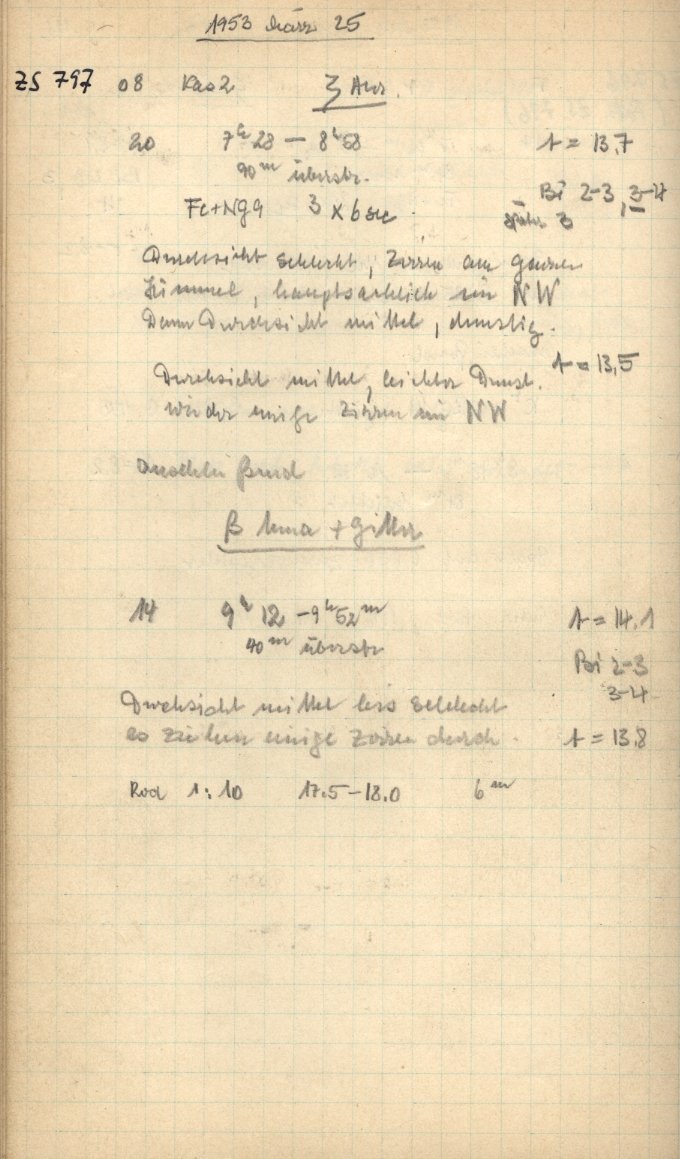 1953 März 25
ZS 797 08 Kas2 ζ Aur.
20 7h28 — 8h58 t = 13,7
90m überstr. Bi 2-3, 3-4
Fe+Ng9 3 x 6 sec. später 3
Durchsicht schlecht, Zirren am ganzen
Himmel, hauptsächlich im NW
Dann Durchsicht mittel, dunstig.
t = 13,5
Durchsicht mittel, leichter Dunst.
wieder einige Zirren im NW
β Uma + Gitter
14 9h 12 - 9h 52m t = 14,1
40m überstr Bi 2-3
3-4
Durchsicht mittel bis schlecht
es ziehen einige Zirren durch. t = 13,8
Rod 1:10 17.5-18.0 6m